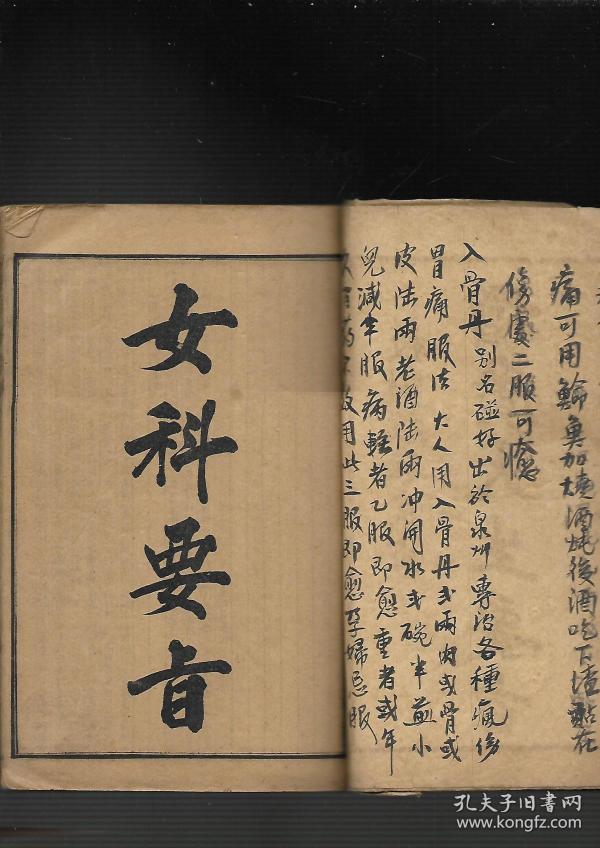 痛可用鱼加燒酒炖後酒吃下渣黏在
傷處二服可癒
入骨丹别名碰好出於泉州專治各種瘋傷
胃痛服法大人用入骨丹弍兩肉或骨或
皮陆兩老酒陆兩冲開水弍碗半煎小
兒減半服病輕者乙服即愈重者或年
用此三服即愈孕婦忌服
女科要旨
孔夫子旧书网
www.kongfz.com